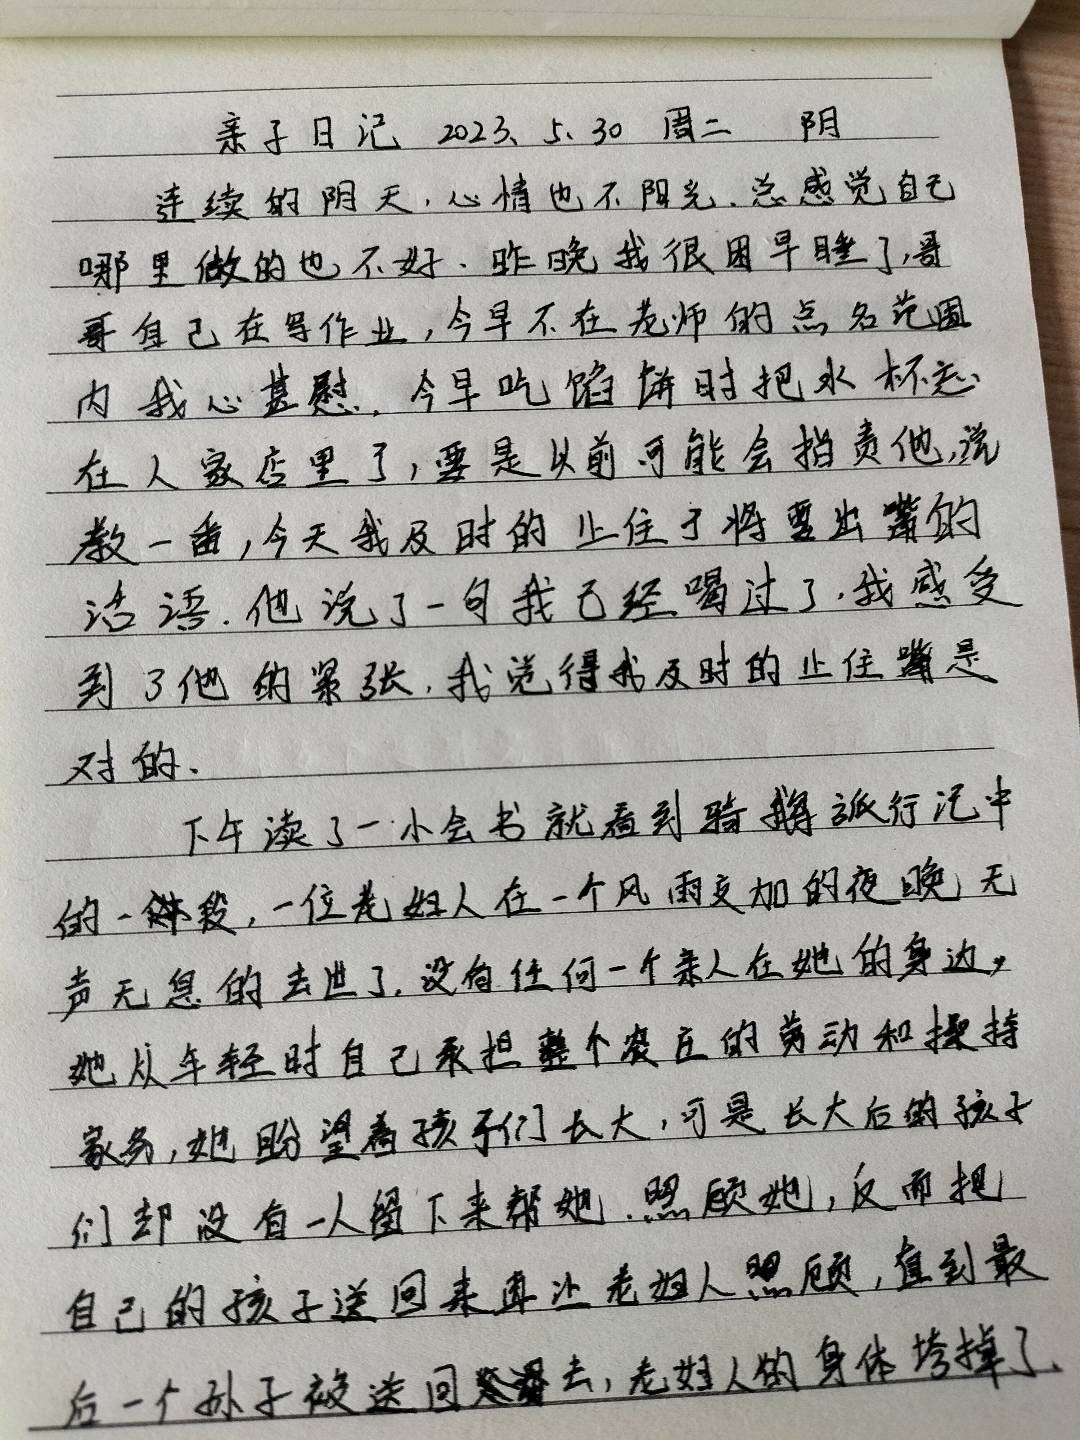 亲子日记 2023、5、30 周二 阴
连续的阴天,心情也不阳光、总感觉自己
哪里做的也不好.昨晚我很困早睡了,哥
哥自己在写作业,今早不在老师的点名范围
内我心甚慰.今早吃馅饼时把水杯忘
在人家店里了,要是以前可能会指责他,说
教一番,今天我及时的止住了将要出嘴的
话语.他说了一句我已经喝过了.我感受
到了他的紧张.我觉得我及时的止住嘴是
对的.
下午读了一小会书就看到骑鹅旅行记中
的一段,一位老妇人在一个风雨交加的夜晚无
声无息的去世了.没有任何一个亲人在她的身边,
她从年轻时自己承担整个农庄的劳动和操持
家务,她盼望着孩子们长大,可是长大后的孩子
们却没有一人留下来帮她.照顾她,反而把
自己的孩子送回来再让老妇人照顾,直到最
后一个孙子被送回去,老妇人的身体垮掉了